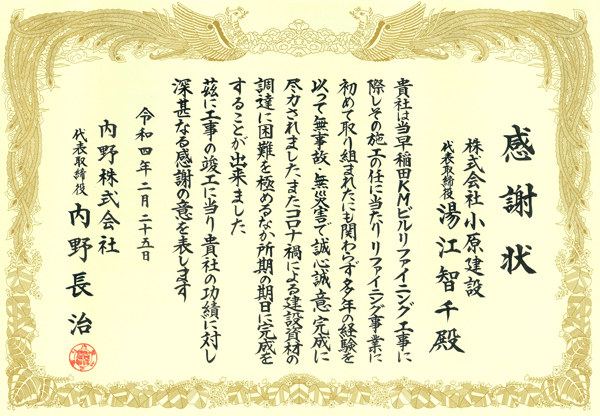 感謝状
株式会社小原建設
代表取締役 湯江智千殿
貴社は当早稲田KMビルリファイニング工事に
際しその施工の任に当たりリファイニング事業に
初めて取り組まれたにも関わらず多年の経験を
以って無事故・無災害で誠心誠意完成に
尽力されました またコロナ禍による建設資材の
調達に困難を極めるなか所期の期日に完成を
することが出来ました
茲に工事の竣工に当り貴社の功績に対し
深甚なる感謝の意を表します
令和四年二月二十五日
内野株式会社
代表取締役 内野長治